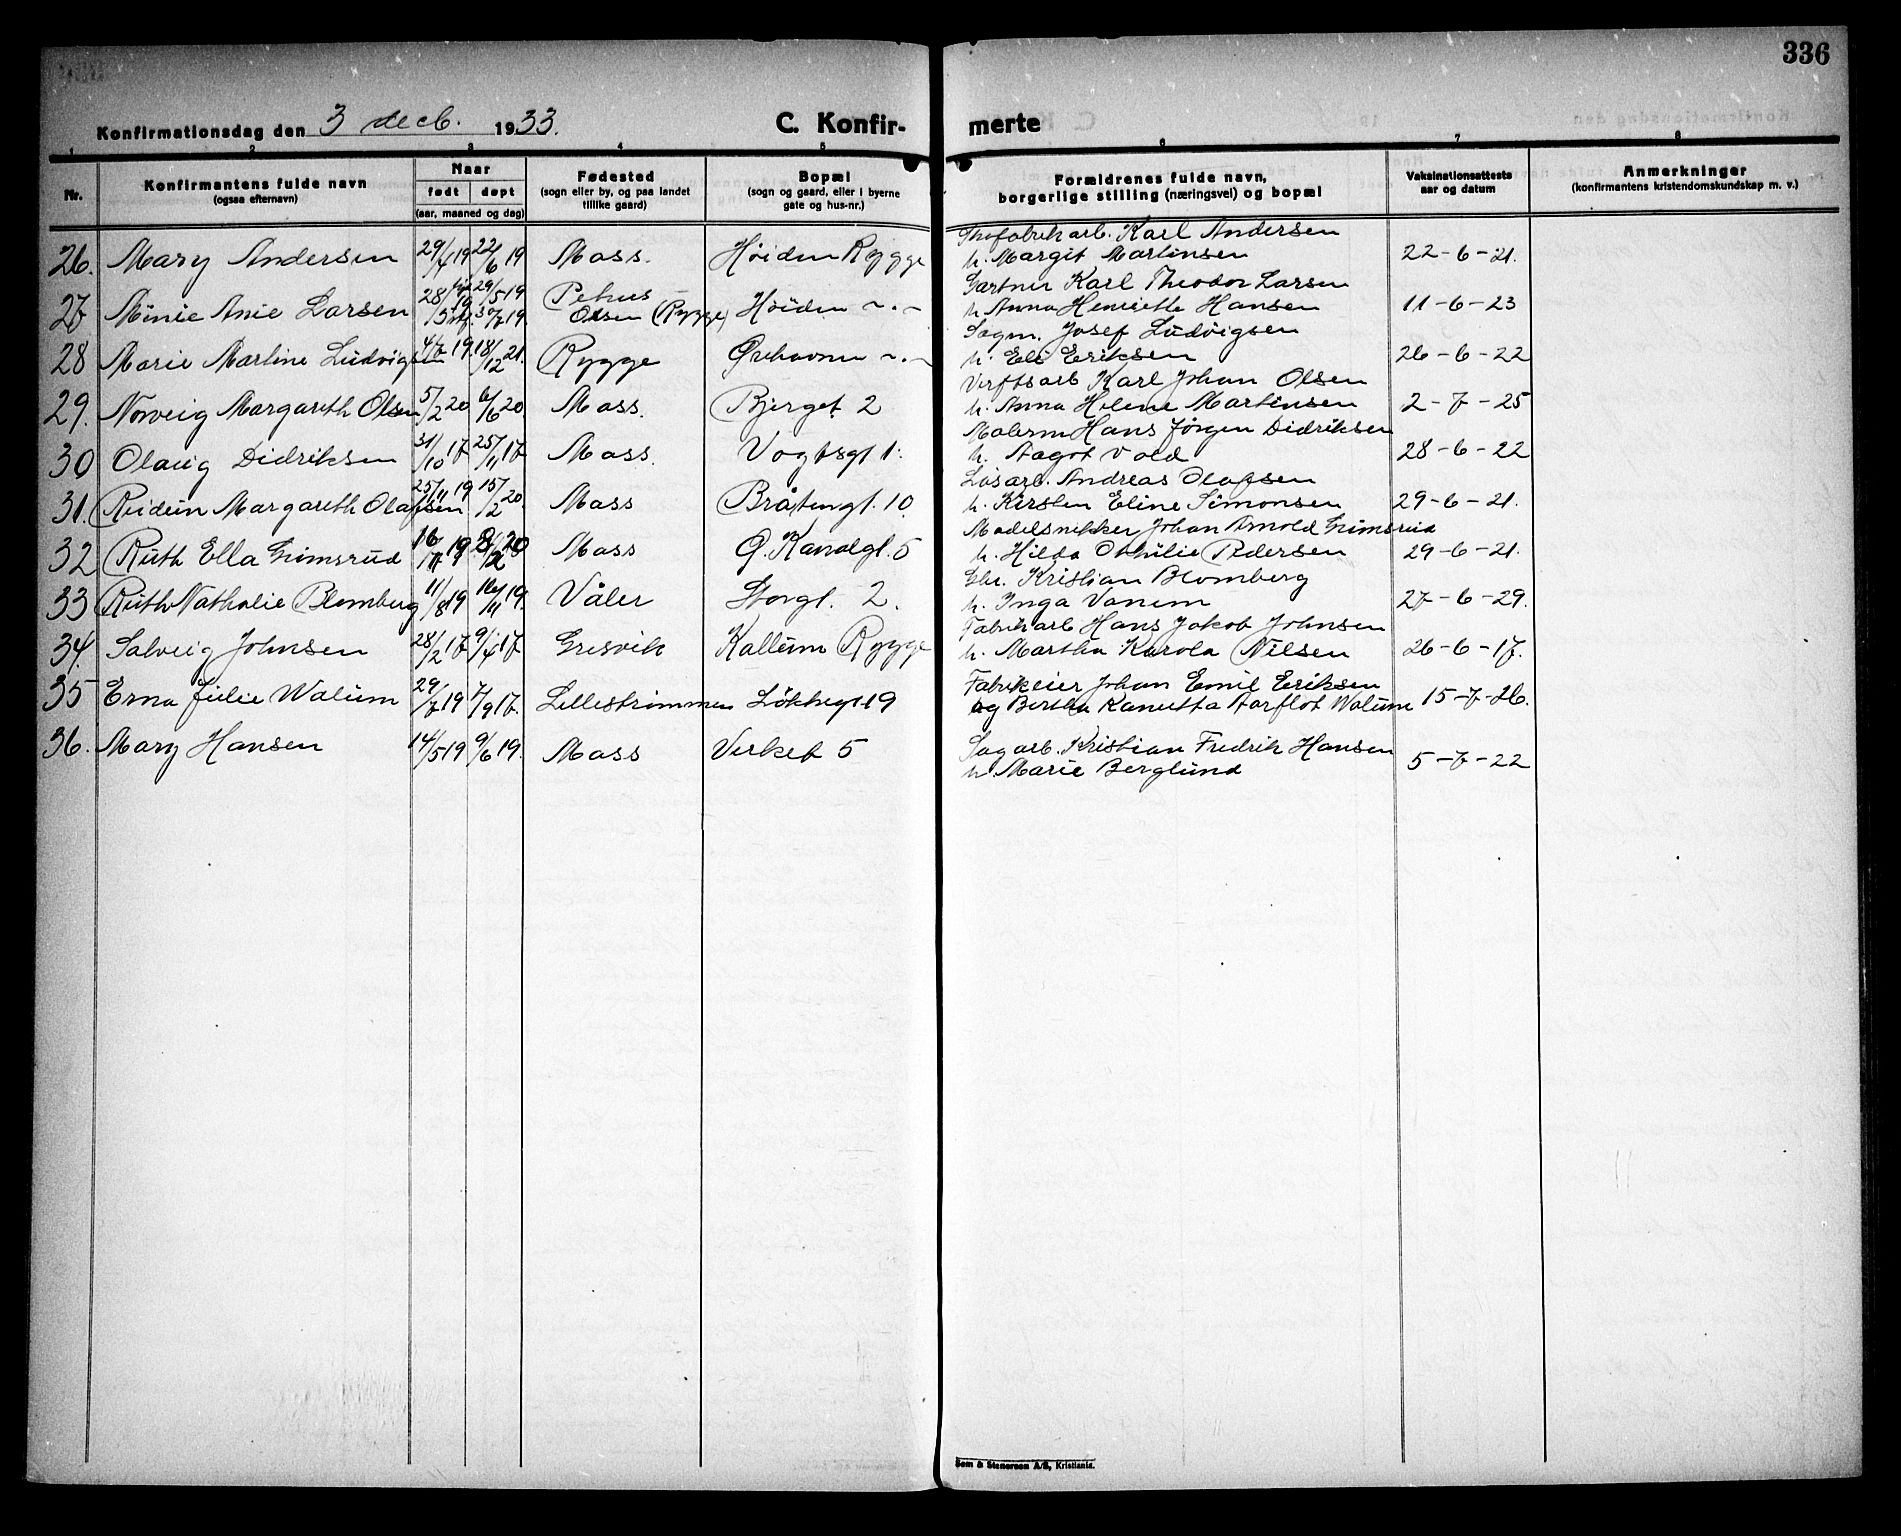 336
Konfirmationsdag den 3 decb. 1933.
C. Konfir-
merte
1 2 3 4 5 6 7 8
Nr.
Konfirmantens fulde navn
(ogsaa efternavn)
Naar
født døpt
(aar, maaned og dag)
Fødested
(sogn eller by, og paa landet
tillike gaard)
Bopæl
(sogn og gaard, eller i byerne
gate og hus-nr.)
Forældrenes fulde navn,
borgerlige stilling (næringsvei) og bopæl
Vaksinationsattests
aar og datum
Anmerkninger
(konfirmantens kristendomskundskap m. v.)
26. Mary Andersen 29/4 19 22/6 19 Moss. Høiden Rygge
Karl Andersen
h. Margit Martinsen 22-6-21.
27 Minie Anie Larsen 28/5 19 29/5 19 Høiden ~.~
Olsen (Rygge)
Gartner Karl Theodor Larsen
h. Anna Henriette Hansen 11-6-23
28 Marie Martine Ludvigsen 4/7 19. 18/12 21. Rygge Ørehavnen ~.~
Sagm. Josef Ludvigsen
h. Els Eriksen 26-6-22
29. Norveig Margareth Olsen 5/2 20 6/6 20. Moss. Bjerget 2
Verftsarb Karl Johan Olsen
h. Anna Helene Martinsen 2-7-25
30 Olaug Didriksen 31/10 17 25/11 17 Moss. Vogtsgt 1.
Malerm Hans Jörgen Didriksen
h. Aagot Vold 28-6-22
31. Reidun Margareth Olafsen 25/11 19 15/2 20. Moss Bråtengt. 10.
Løsarb. Andreas Olafsen
h. Kirsten Eline Simonsen 29-6-21.
32 Ruth Ella Grimsrud 16/11 19 8/2 20 Moss G. Kanalgt. 5
Modelsnekker Johan Arnold Grimsrud
h. Hilda Othilie Pedersen 29-6-21.
33 Ruth Nathalie Blomberg 11/8 19 16/11 19. Våler Storgt. 2.
Kristian Blomberg
h. Inga Vanem 27-6-29.
34. Solveig Johnsen 28/2 17 9/4 17 Gresvik Kallum Rygge
Fabrikarb Hans Jakob Johnsen
h. Martha Karola Nilsen 26-6-17.
35 Erna Julie Walum 29/7 19 7/9 17. Lillestrømmen Løkkegt 19
Fabrikeier Johan Emil Eriksen
og Bertha Kanutta Aarflot Walum 15-7-26.
36. Mary Hansen 14/5 19 9/6 19. Moss Verket 5
Sagarb. Kristian Fredrik Hansen
h. Marie Berglund 5-7-22
Sem & Stenersen A/S, Kristiania.